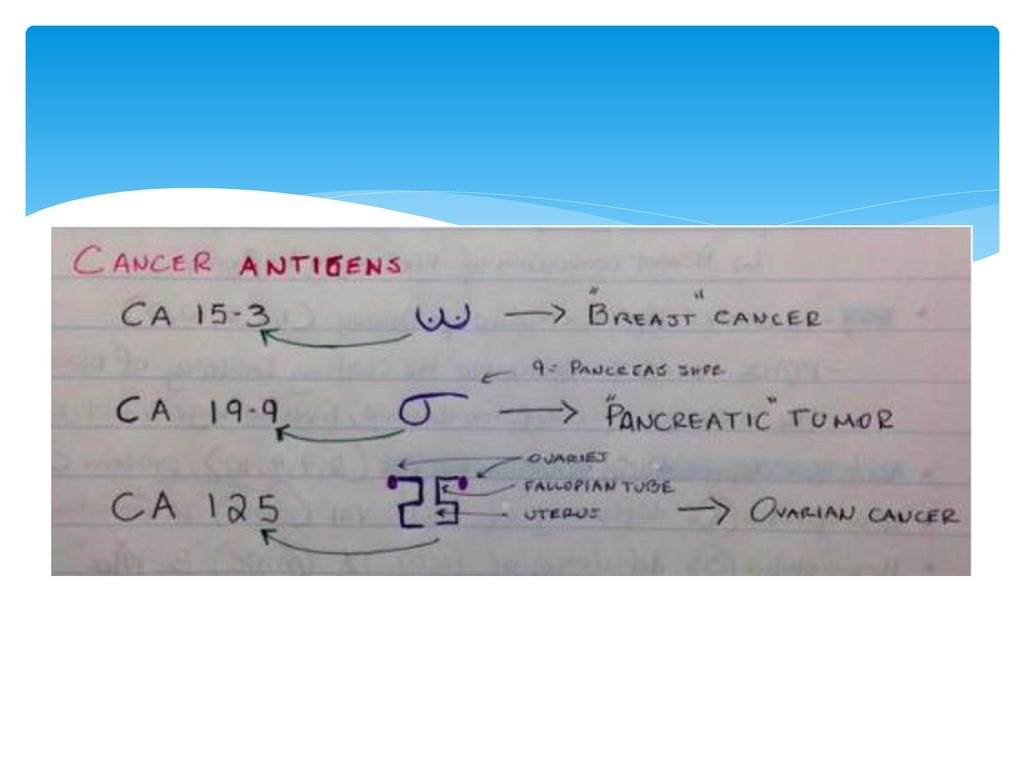 CANCER ANTIGENS
CA 15-3 → "BREAST" CANCER
9 = PANCREAS SHPE
CA 19-9 → "PANCREATIC" TUMOR
OVARIES
FALLOPIAN TUBE
CA 125 25 UTERUS → OVARIAN CANCER